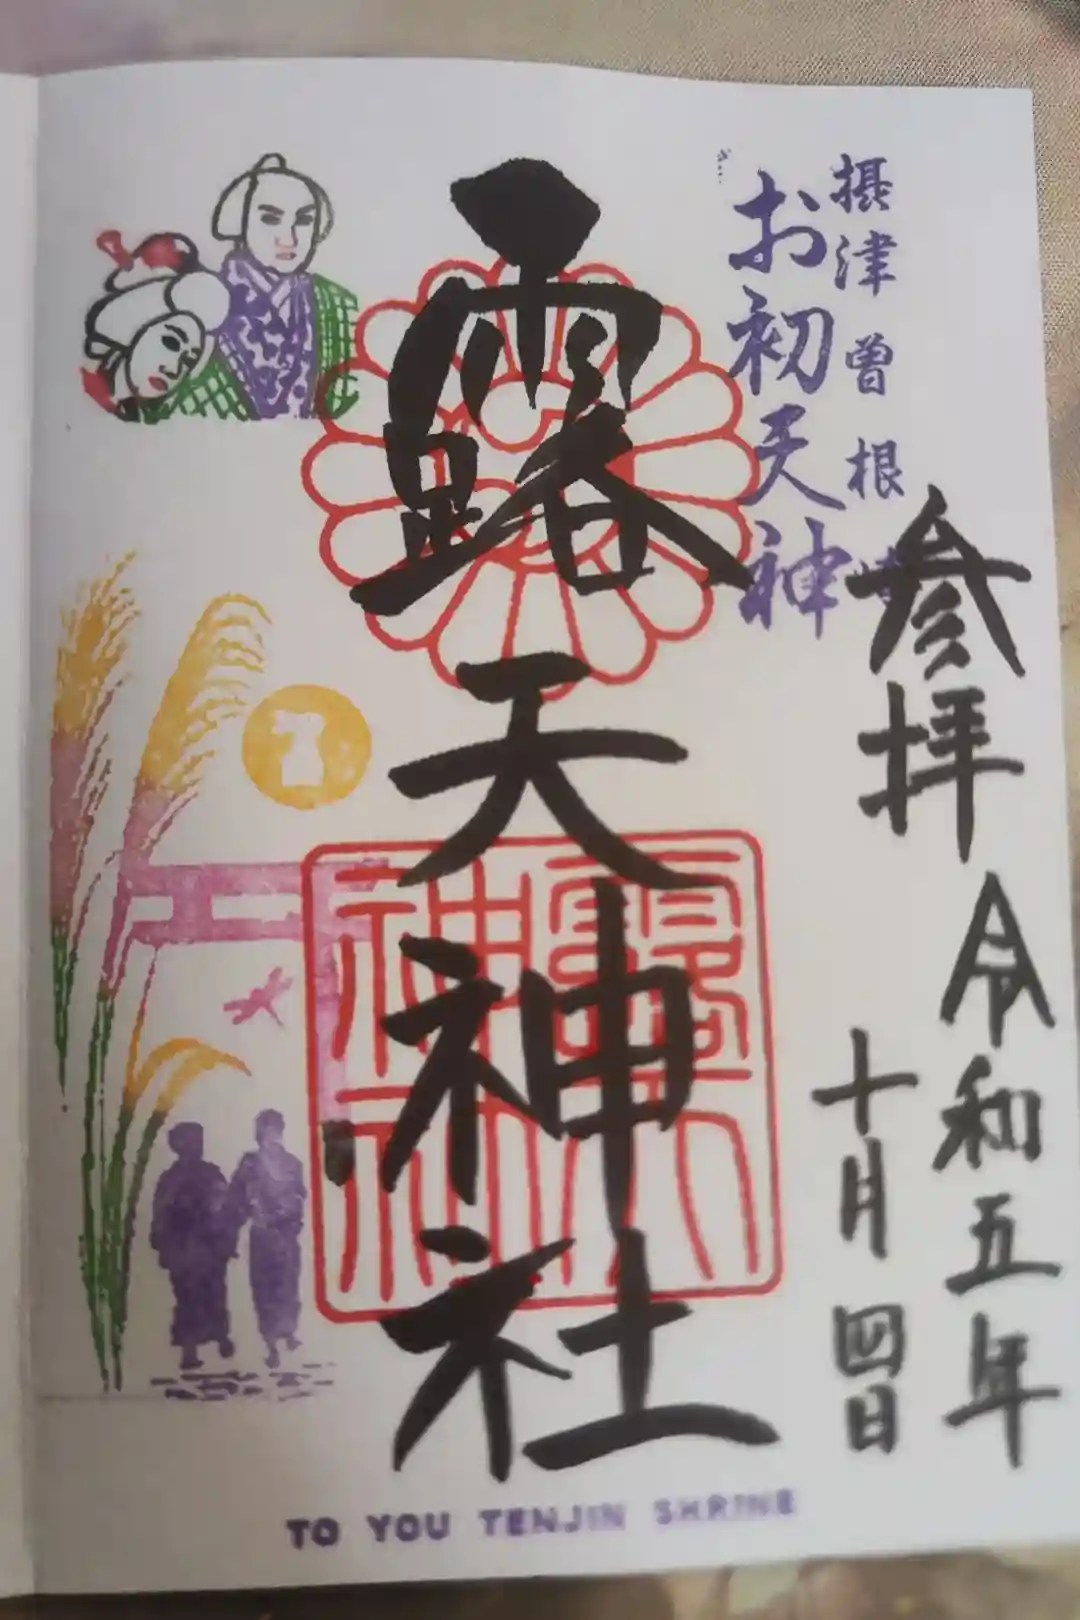 摂津曽根崎
お初天神
参拝
令和五年
十月四日
露天神社
TO YOU TENJIN SHRINE